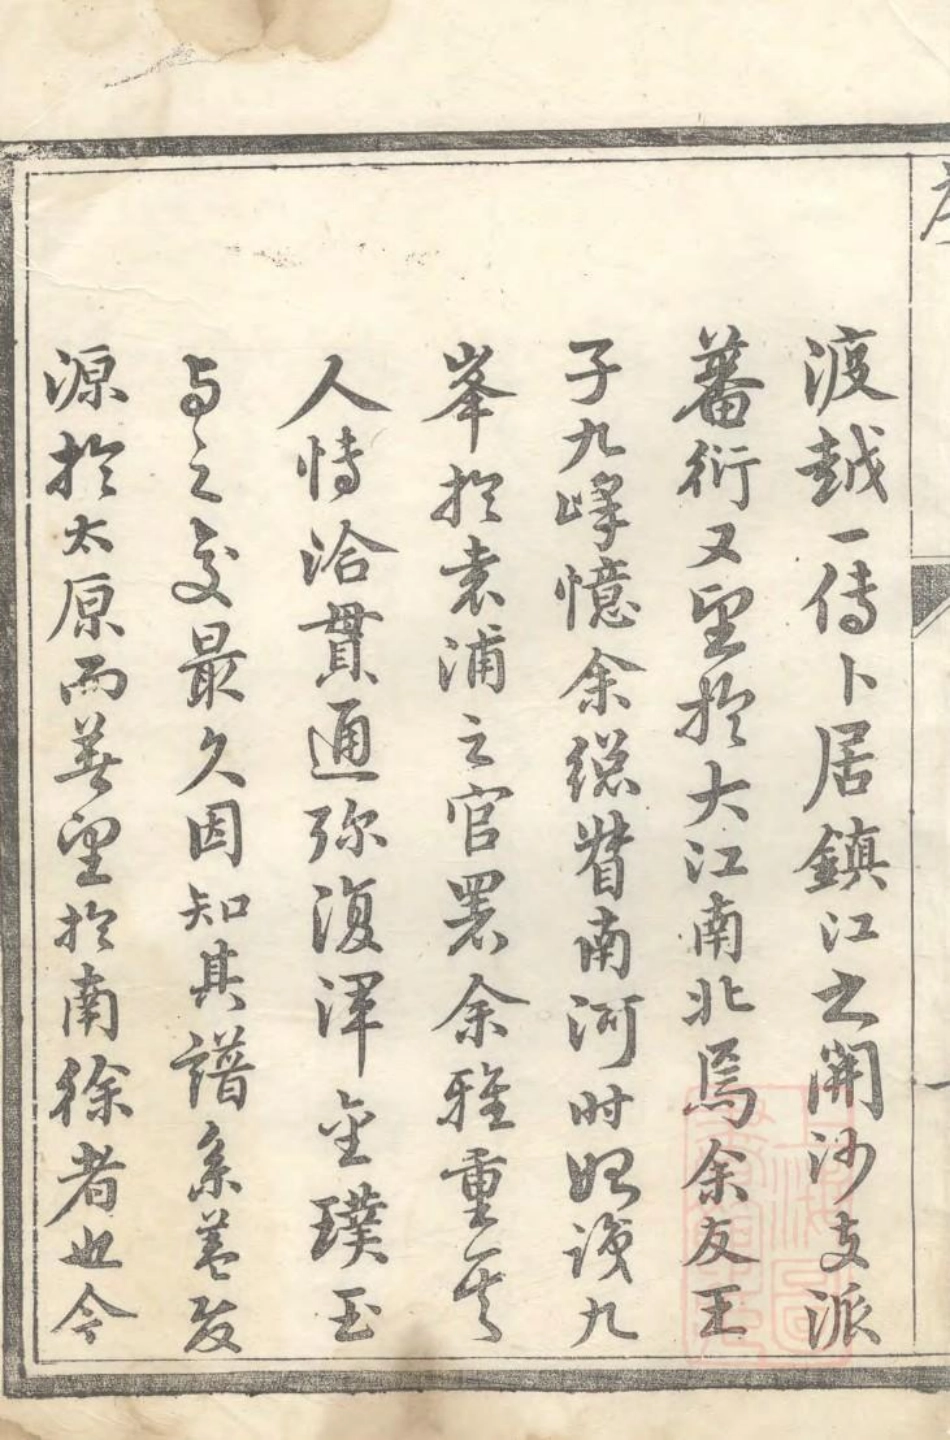 渡越一傳卜居鎮江之開沙支派
蕃衍又望於大江南北焉余友王
子九峰憶余總督南河时始識九
峯於袁浦之官署余雅重其
人恃洽貫通弥復渾金璞玉
与之交最久因知其譜系蓋發
源於太原而著望於南徐者也今